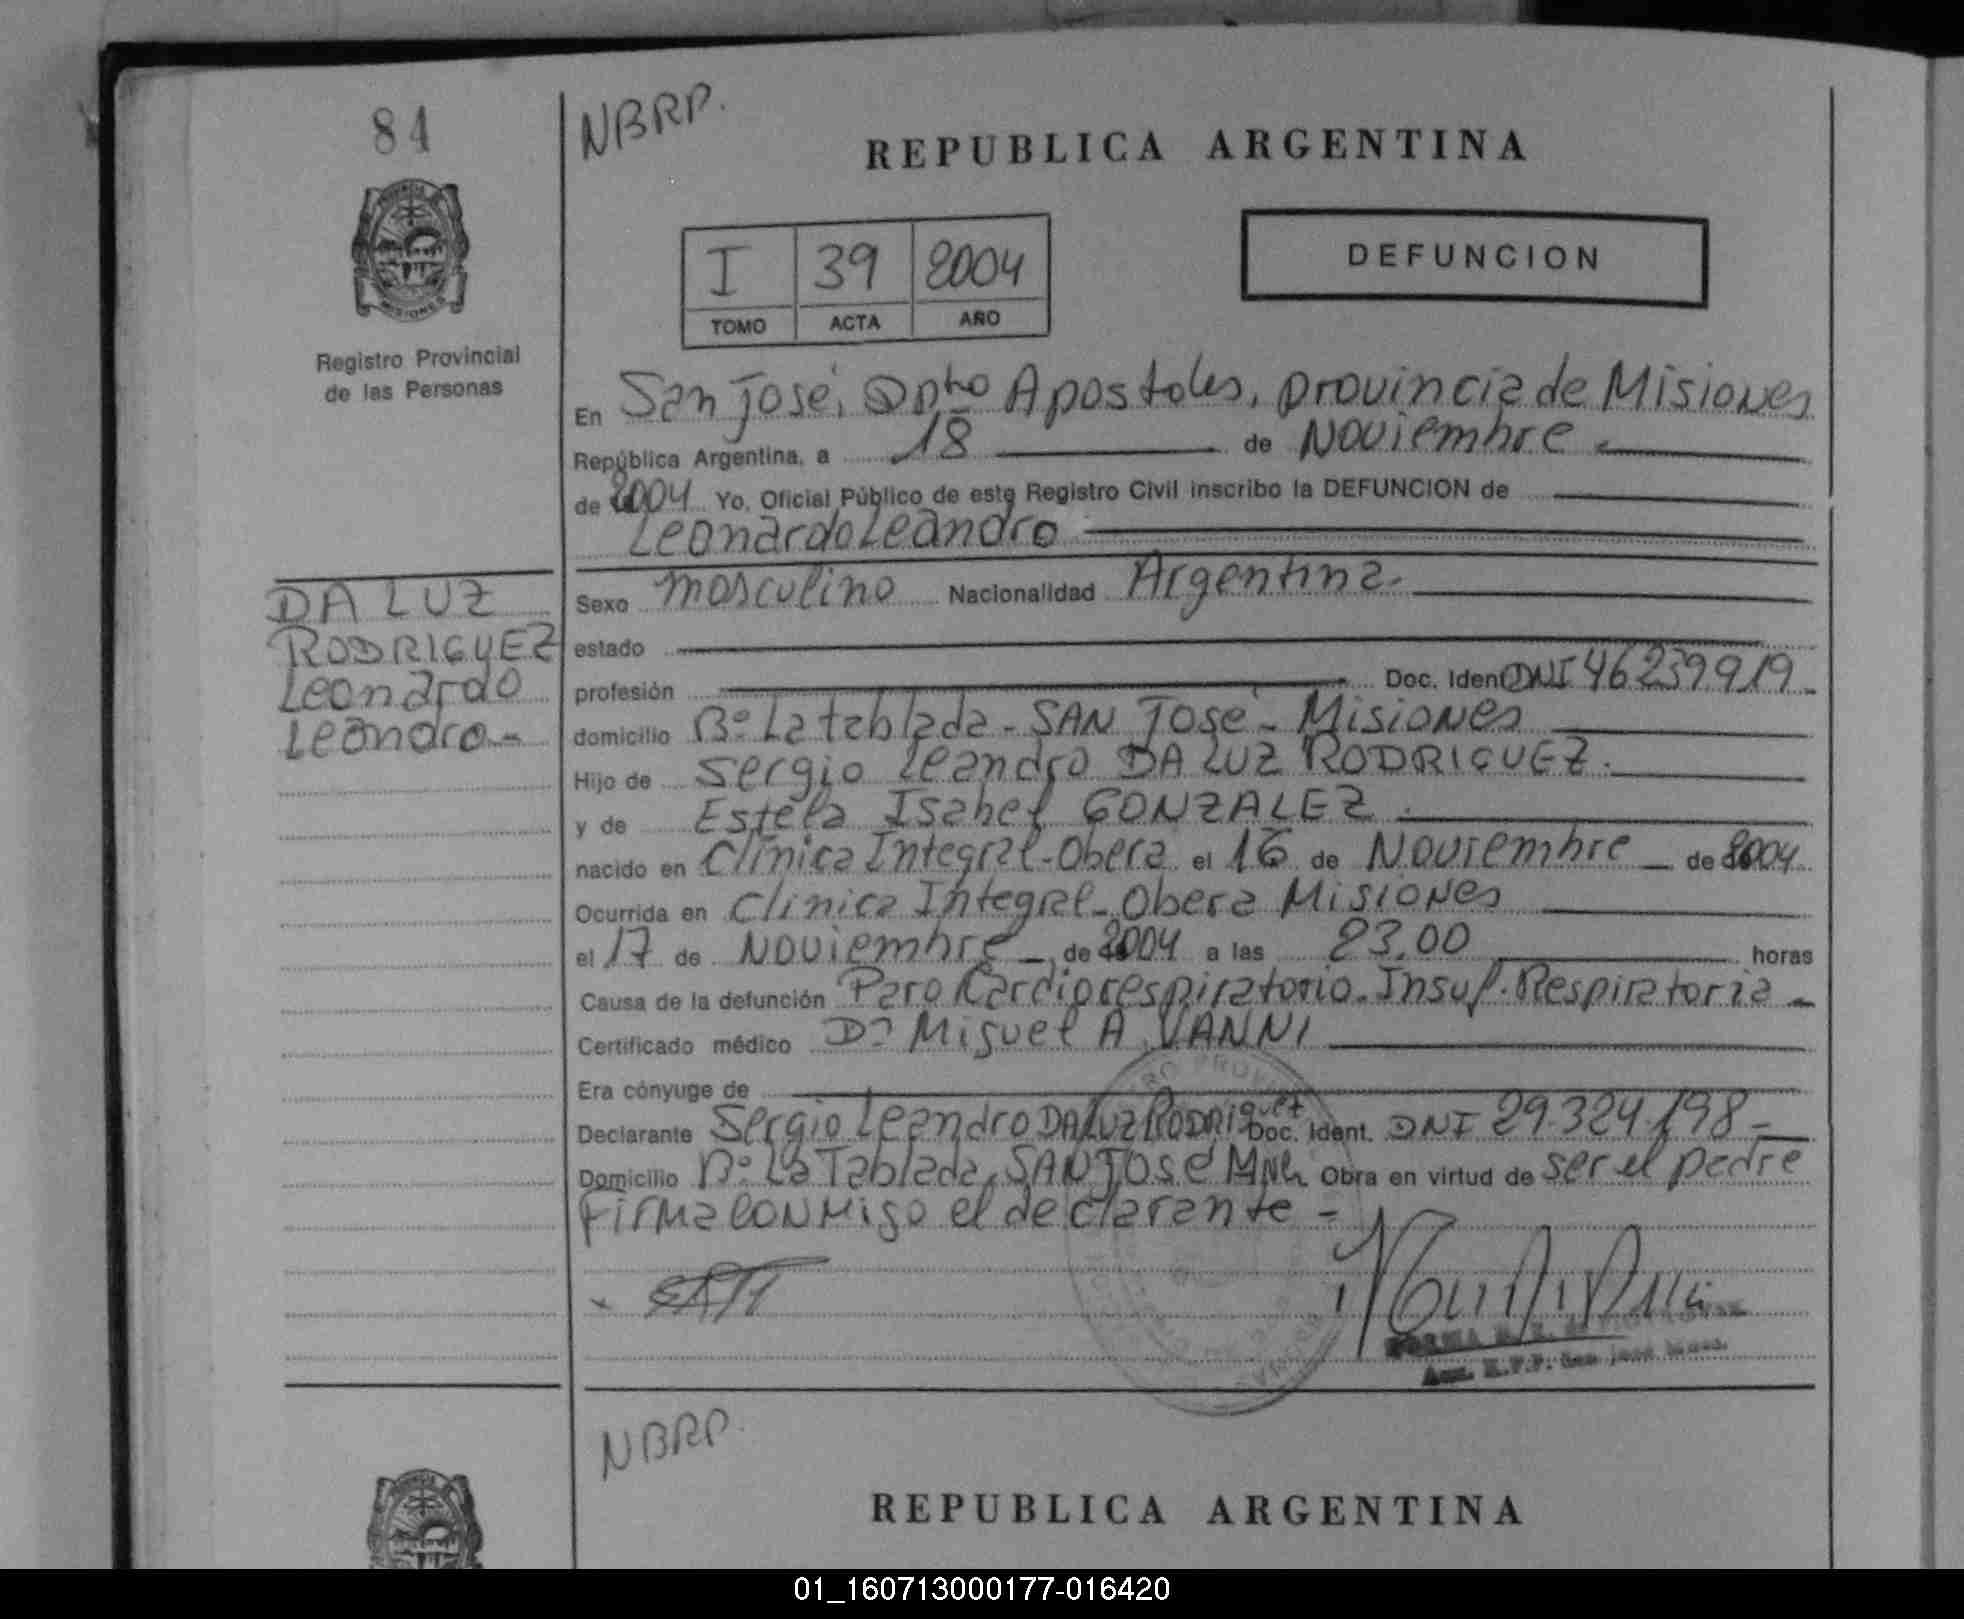 84
NBRP.
REPUBLICA ARGENTINA
I 39 2004
TOMO ACTA AÑO
DEFUNCION
PROVINCIA
MISIONES
Registro Provincial
de las Personas
En San José, Dpto Apostoles, provincia de Misiones
República Argentina, a 18 de Noviembre
de 2004 Yo, Oficial Público de este Registro Civil inscribo la DEFUNCION de
Leonardo Leandro
DA LUZ
RODRIGUEZ
Leonardo
Leandro.-
Sexo masculino Nacionalidad Argentina.
estado
profesión Doc. Ident. DNI 46239919
domicilio Bº La tablada - SAN José - Misiones
Hijo de Sergio Leandro DA LUZ RODRIGUEZ.
y de Estela Isabel GONZALEZ.
nacido en Clínica Integral - Obera el 16 de Noviembre de 2004
Ocurrida en Clinica Integral - Obera Misiones
el 17 de Noviembre de 2004 a las 23,00 horas
Causa de la defunción Paro Cardiorespiratorio. Insuf. Respiratoria
Certificado médico Dr Miguel A VANNI
Era cónyuge de
Declarante Sergio Leandro DA LUZ RODRIGuez Doc. Ident. DNI 29.324.198
Domicilio Bº La Tablada, SAN José Mnes Obra en virtud de ser el padre
Firma conmigo el declarante -
R.P.P. San José
NBRP.
REPUBLICA ARGENTINA
01_160713000177-016420